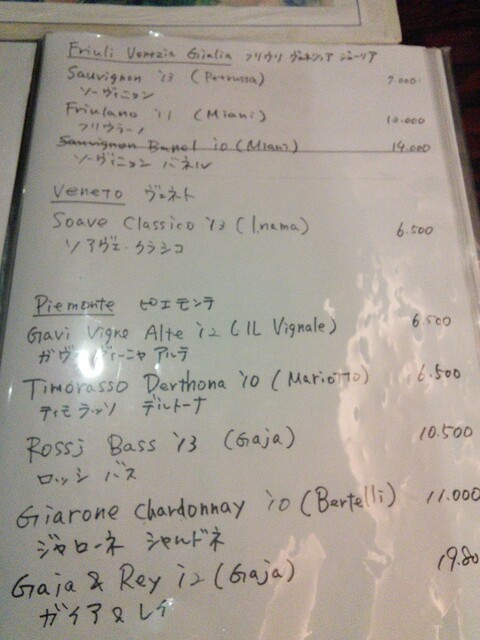 Friuli Venezia Giulia フリウリ ヴェネツィア ジューリア
Sauvignon '13 (Petrussa) 7.000
ソーヴィニョン
Friulano '11 (Miani) 10.000
フリウラーノ
Sauvignon Banel 10 (Miani) 14.000
ソーヴィニョン バネル
Veneto ヴェネト
Soave Classico '13 (Inama) 6.500
ソアヴェ・クラシコ
Piemonte ピエモンテ
Gavi Vigne Alte 12 (IL Vignale) 6.500
ガヴィ ヴィーニャ アルテ
Timorasso Derthona '10 (Mariotto) 6.500
ティモラッソ デルトーナ
Rossj Bass '13 (Gaja) 10.500
ロッシ バス
Giarone Chardonnay '10 (Bertelli) 11.000
ジャローネ シャルドネ
Gaja & Rey 12 (Gaja) 19.80
ガイア & レイ